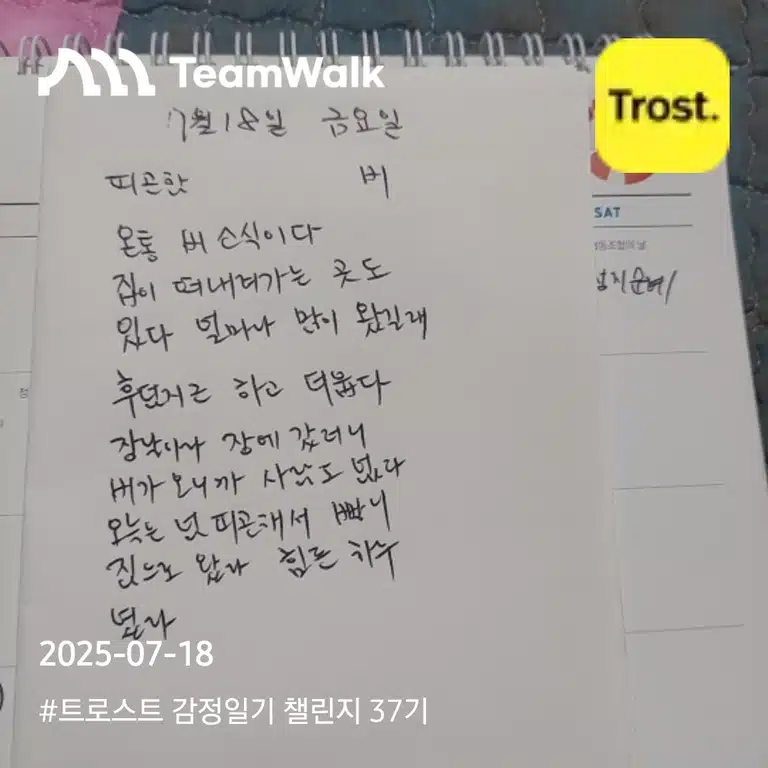 TeamWalk
Trost.
7월 18일 금요일
피곤핫 비
SAT
온통 비 소식이다
집이 떠내려가는 곳도
있다 얼마나 많이 왔길래
후덥지근 하고 덥다
장날이라 장에 갔더니
비가 오니까 사람도 없다
오늘은 넘 피곤해서 빠니
집으로 왔다 힘든 하루
였다
2025-07-18
#트로스트 감정일기 챌린지 37기